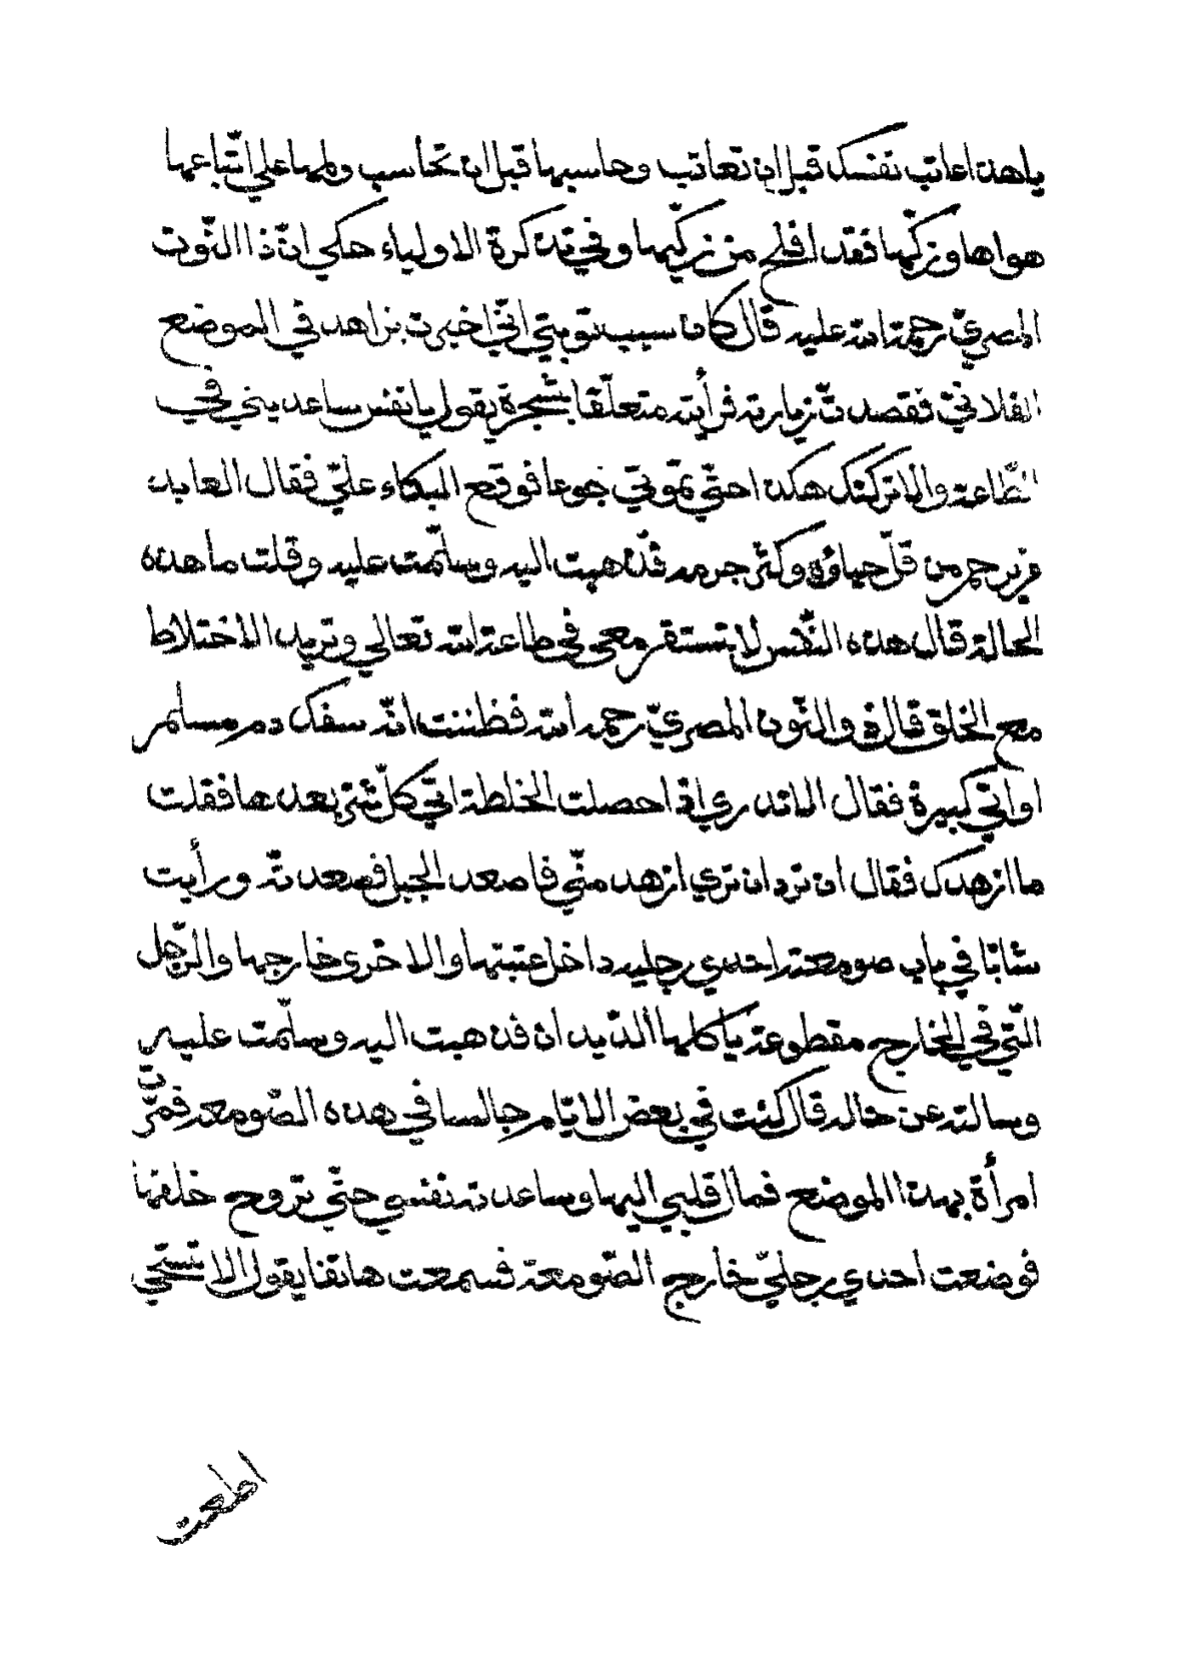 يا هذا عاتب نفسك قبل ان تعاتب وحاسبها قبل ان تحاسب ولمها على اتّباعها
هواها وزكّها فقد افلح من زكّيها وفي تذكرة الاولياء حكي انّ ذا النّون
المصريّ رحمة الله عليه قال كان سبب توبتي انّي اخبرت بزاهد في الموضع
الفلانيّ فقصدتّ زيارته فرأيته متعلّقا بشجرة يقول يا نفس ساعديني في
الطّاعة والا تركتك هكذا حتّي تموتي جوعا فوقع البكاء عليّ فقال العابد
من يرحم من قلّ حياؤه وكثر جرمه فذهبت اليه وسلّمت عليه وقلت ما هذه
الحالة قال هذه النّفس لا تستقر معي في طاعة الله تعالي وتريد الاختلاط
مع الخلق قال ذو النّون المصريّ رحمه الله فظننت انّه سفك دم مسلم
او اتي كبيرة فقال الا تدري اذا حصلت الخلطة اتي كلّ شئ بعدها فقلت
ما ازهدك فقال ان ترد ان تري ازهد منّي فاصعد الجبل فصعدتّه ورأيت
شابّا في باب صومعة احدي رجليه داخل عتبتها والاخري خارجها والرّجل
الّتي في الخارج مقطوعة يأكلها الدّيدان فذهبت اليه وسلّمت عليه
وسالته عن حاله قال كنت في بعض الايّام جالسا في هذه الصّومعة فمرّت
امرأة بهذا الموضع فمال قلبي اليها وساعدته نفسي حتّي تروح خلفها
فوضعت احدي رجليّ خارج الصّومعة فسمعت هاتفا يقول الا تستحي
اطعت